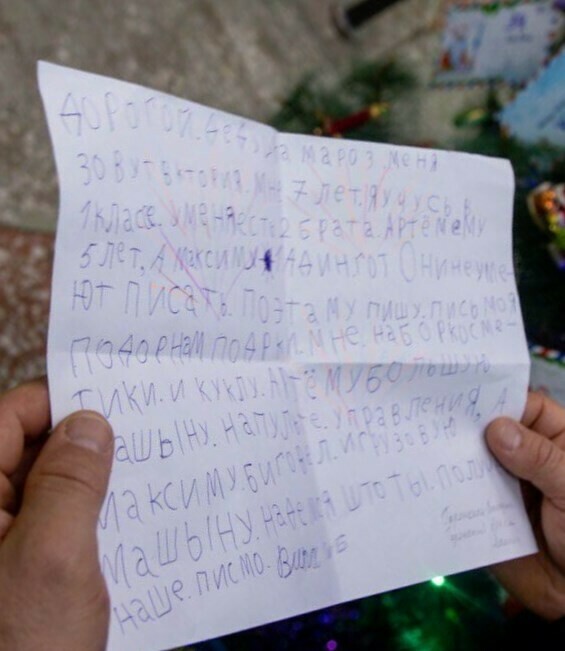 ДОРОГОЙ. ДЕДУШКА МАРОЗ. МЕНЯ
ЗОВУТ ВКТОРИЯ. МНЕ 7 ЛЕТ. Я УЧУСЬ В
1 КЛАСЕ. УМЕНЯ ЕСТЬ 2 БРАТА. АРТЁМЕМУ
5 ЛЕТ, А МАКСИМУ АДИН ГОТ ОНИ НЕ УМЕ-
ЮТ ПИСАТЬ. ПОЭТАМУ ПИШУ. ПИСЬМО Я
ПОДОРИ НАМ ПОДРКИ. МНЕ. НАБОР КОСМЕ-
ТИКИ. И КУКЛУ. АРТЁМУ БОЛЬШУЮ
МАШЫНУ. НАПУЛЬТЕ. УПРАВЛЕНИЯ, А
МАКСИМУ. БИГОВЕЛ. И ГРУЗОВУЮ
МАШЫНУ. НАДЕМСЯ ШТО ТЫ. ПОЛУЧ
НАШЕ. ПИСМО.